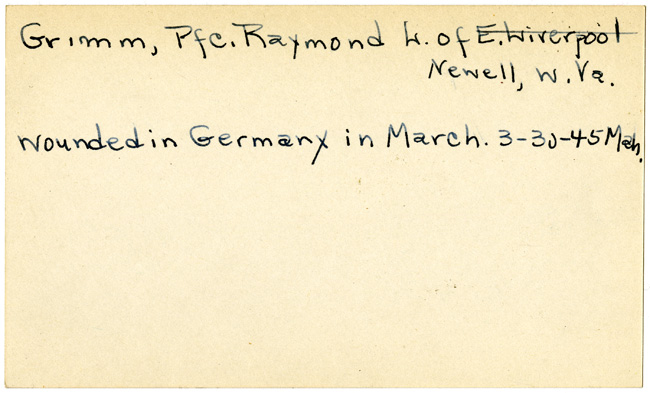 Grimm, Pfc. Raymond L. of E. Liverpool
Newell, W. Va.
Wounded in Germany in March. 3-30-45 Mah.